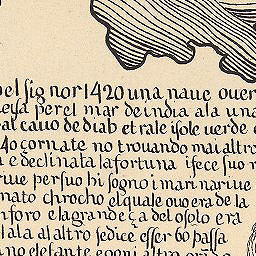 del signor 1420 una naue ouer
uesa per el mar de india ala una
al cauo de diab et rale isole uerde e
40 çornate no trouando mai altro
a e declinata la fortuna ifece suo r
riue per suo bi sogno i marinari ue
nato chrocho el qual e ouo era de la
nforo e la grandeça del osolo era
lala al altro sedice esser 60 passa
no elefante e ogni altro